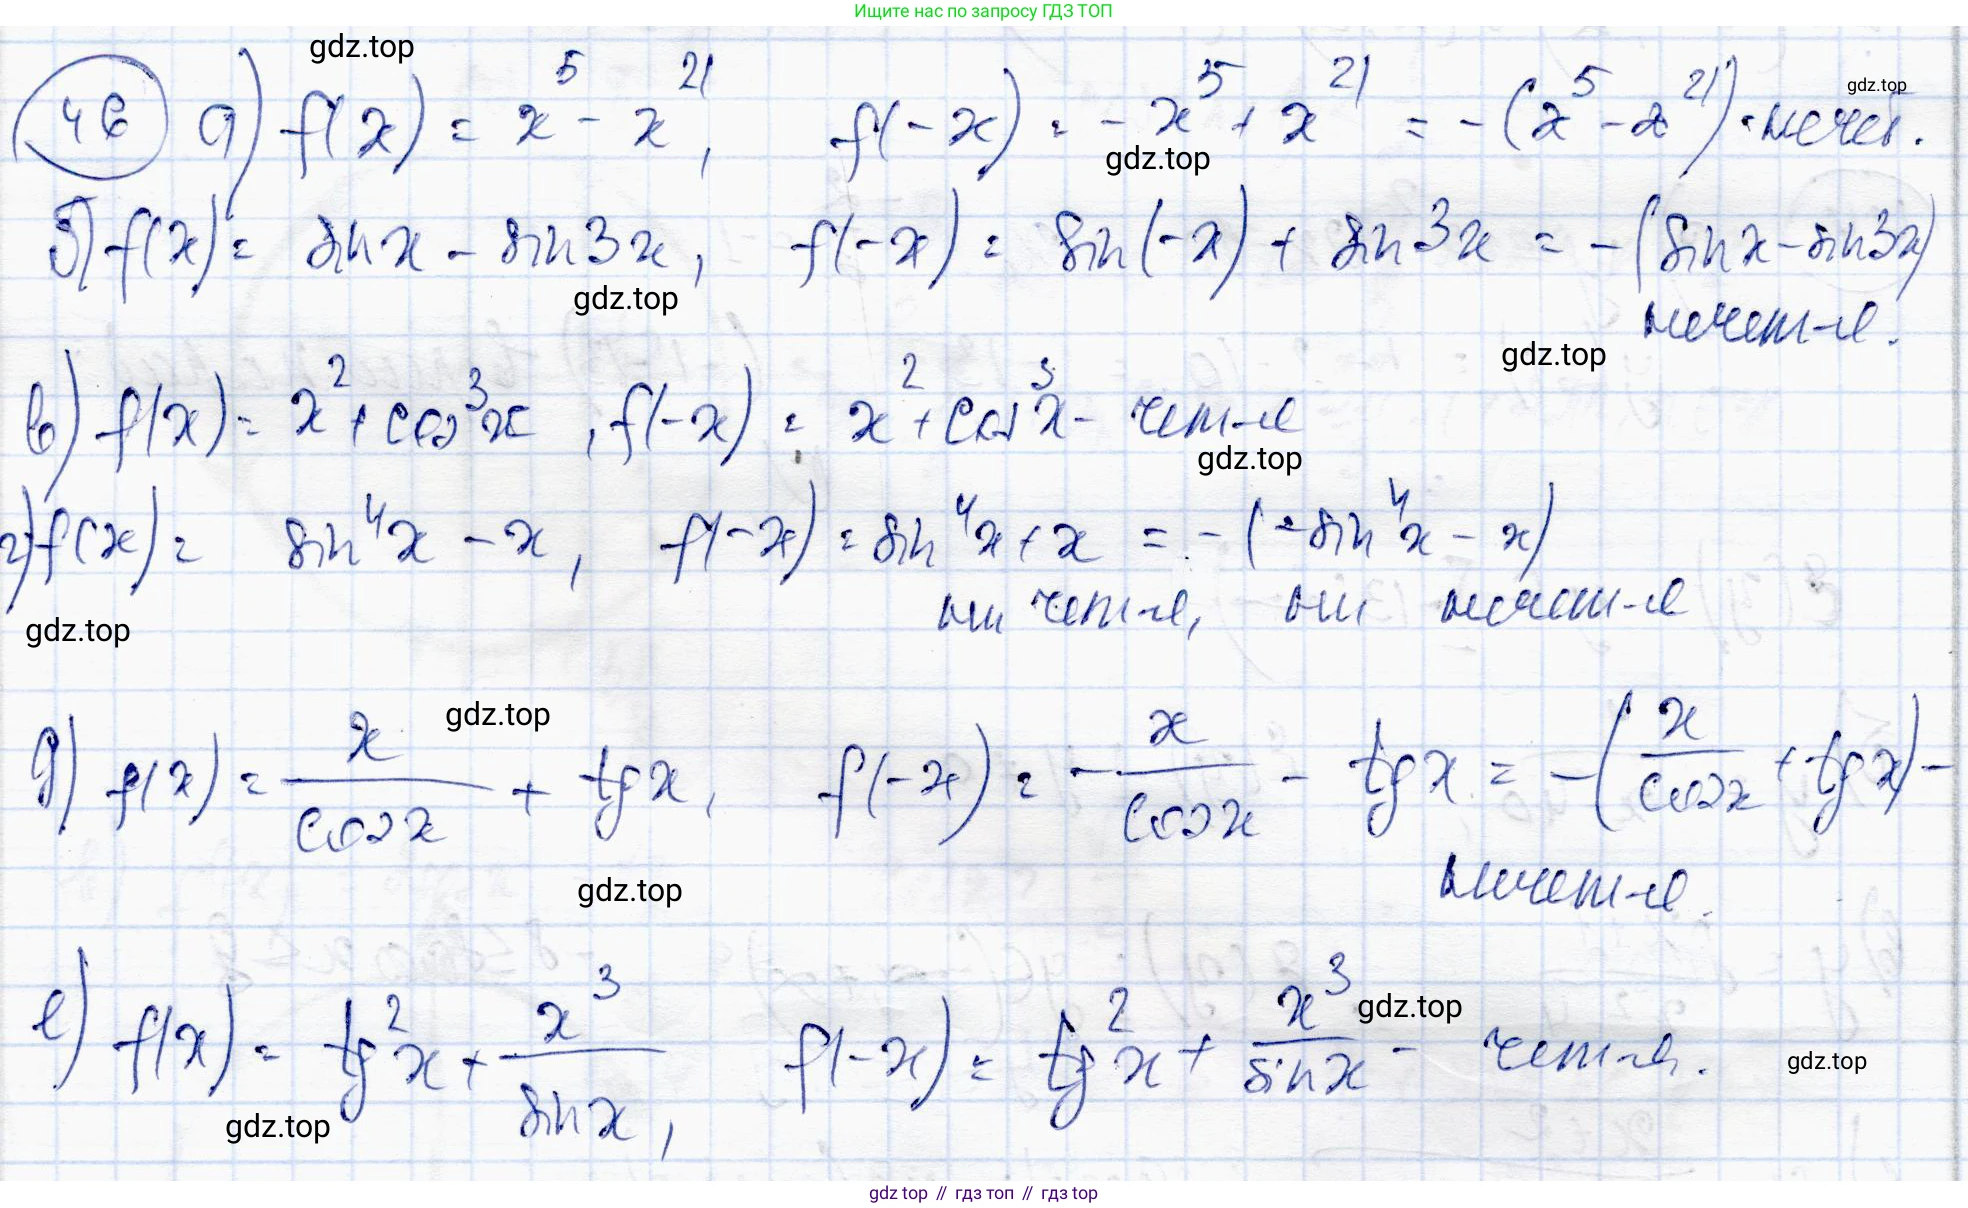 Ищите нас по запросу ГДЗ ТОП
gdz.top
46 а) f(x) = x⁵ - x²¹, f(-x) = -x⁵ + x²¹ = -(x⁵ - x²¹) - нечет.
gdz.top
gdz.top
б) f(x) = sin x - sin 3x, f(-x) = sin(-x) + sin 3x = -(sin x - sin 3x)
gdz.top
нечетн-я.
gdz.top
в) f(x) = x² + cos³x, f(-x) = x² + cos³x - четн-я
gdz.top
г) f(x) = sin⁴x - x, f(-x) = sin⁴x + x = -(-sin⁴x - x)
ни четн-я, ни нечетн-я
gdz.top
gdz.top
д) f(x) = x/cos x + tg x, f(-x) = - x/cos x - tg x = -(x/cos x + tg x) -
нечетн-я.
gdz.top
е) f(x) = tg²x + x³/sin x, f(-x) = tg²x + x³/sin x - четн-я.
gdz.top
gdz.top
gdz.top
gdz top // гдз топ // гдз top